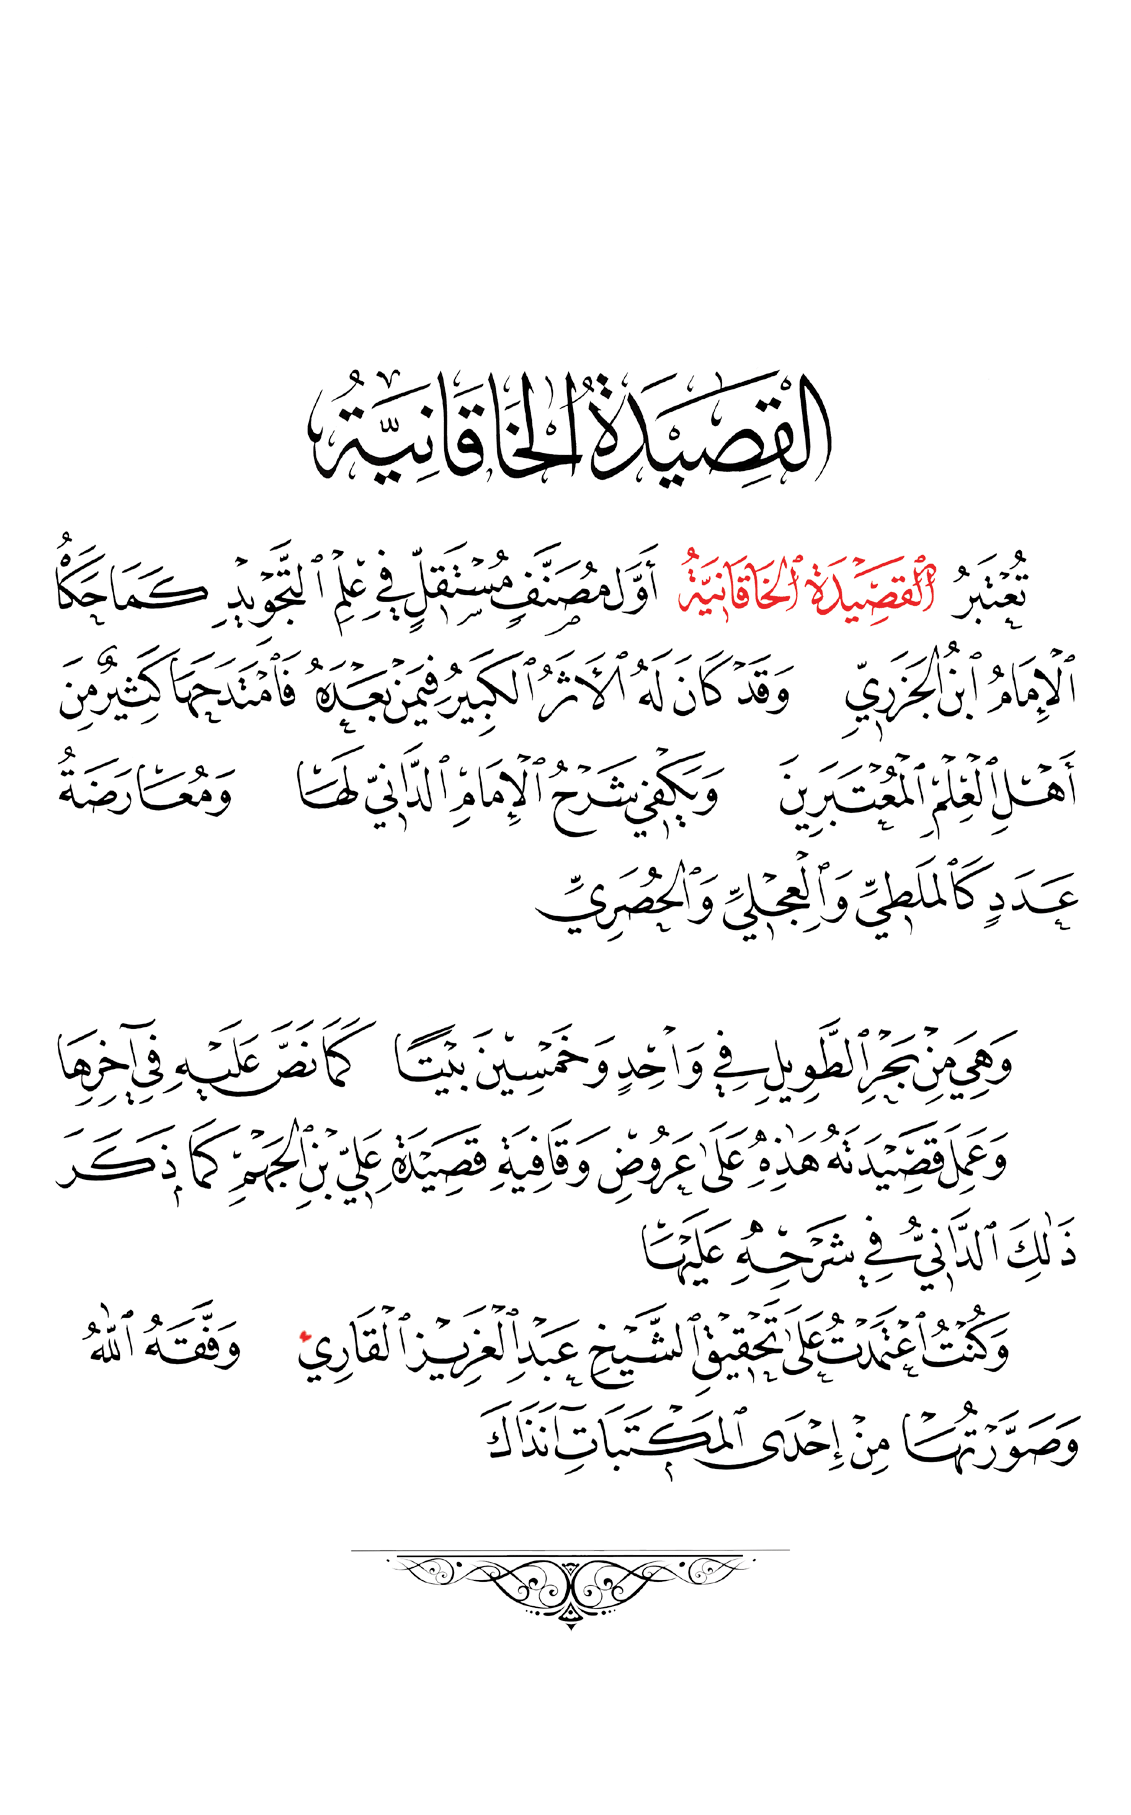 القَصِيدَةُ الخَاقَانِيَّةُ
تُعْتَبَرُ ٱلْقَصِيدَةُ ٱلخَاقَانِيَّةُ أَوَّلَ مُصَنَّفٍ مُسْتَقِلٍّ فِي عِلْمِ ٱلتَّجْوِيدِ كَمَا حَكَاهُ
ٱلْإِمَامُ ٱبْنُ الجَزَرِيِّ وَقَدْ كَانَ لَهُ ٱلْأَثَرُ ٱلكَبِيرُ فِيمَنْ بَعْدَهُ فَامْتَدَحَهَا كَثِيرٌ مِنَ
أَهْلِ ٱلْعِلْمِ ٱلْمُعْتَبَرِينَ وَيَكْفِي شَرْحُ ٱلْإِمَامِ ٱلدَّانِيِّ لَهَا وَمُعَارَضَةُ
عَدَدٍ كَٱلمَلَطِيِّ وَٱلْعِجْلِيِّ وَٱلحُصَرِيِّ
وَهِيَ مِنْ بَحْرِ ٱلطَّوِيلِ فِي وَاحِدٍ وَخَمْسِينَ بَيْتًا كَمَا نَصَّ عَلَيْهِ فِي آخِرِهَا
وَعَمِلَ قَصِيدَتَهُ هَٰذِهِ عَلَىٰ عَرُوضِ وَقَافِيَةِ قَصِيدَةِ عَلِيِّ بْنِ ٱلجَهْمِ كَمَا ذَكَرَ
ذَٰلِكَ ٱلدَّانِيُّ فِي شَرْحِهِ عَلَيْهَا
وَكُنْتُ ٱعْتَمَدْتُ عَلَىٰ تَحْقِيقِ ٱلشَّيْخِ عَبْدِ ٱلْعَزِيزِ ٱلْقَارِي وَفَّقَهُ ٱللَّهُ
وَصَوَّرْتُهَا مِنْ إِحْدَى ٱلمَكْتَبَاتِ آنَذَاكَ